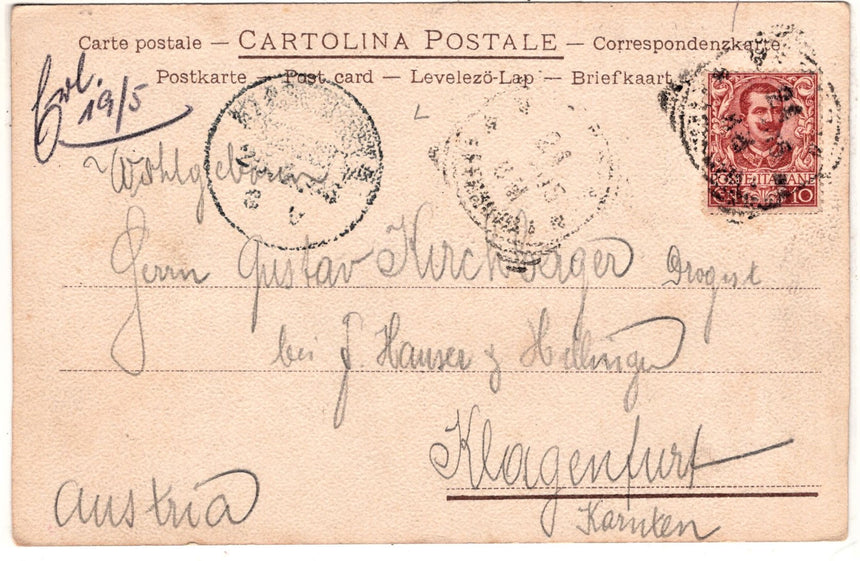 Carte postale — CARTOLINA POSTALE — Correspondenzkarte
Postkarte — Post card — Levelező-Lap — Briefkaart
19/5
POSTE ITALIANE
10
Wohlgeboren
Herrn Gustav Kirchberger Drogist
bei J. Hauser &
Klagenfurt
Austria
Kärnten